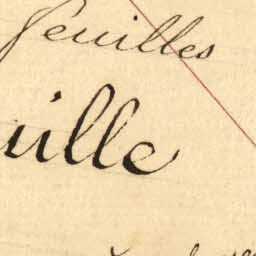 feuilles
uille